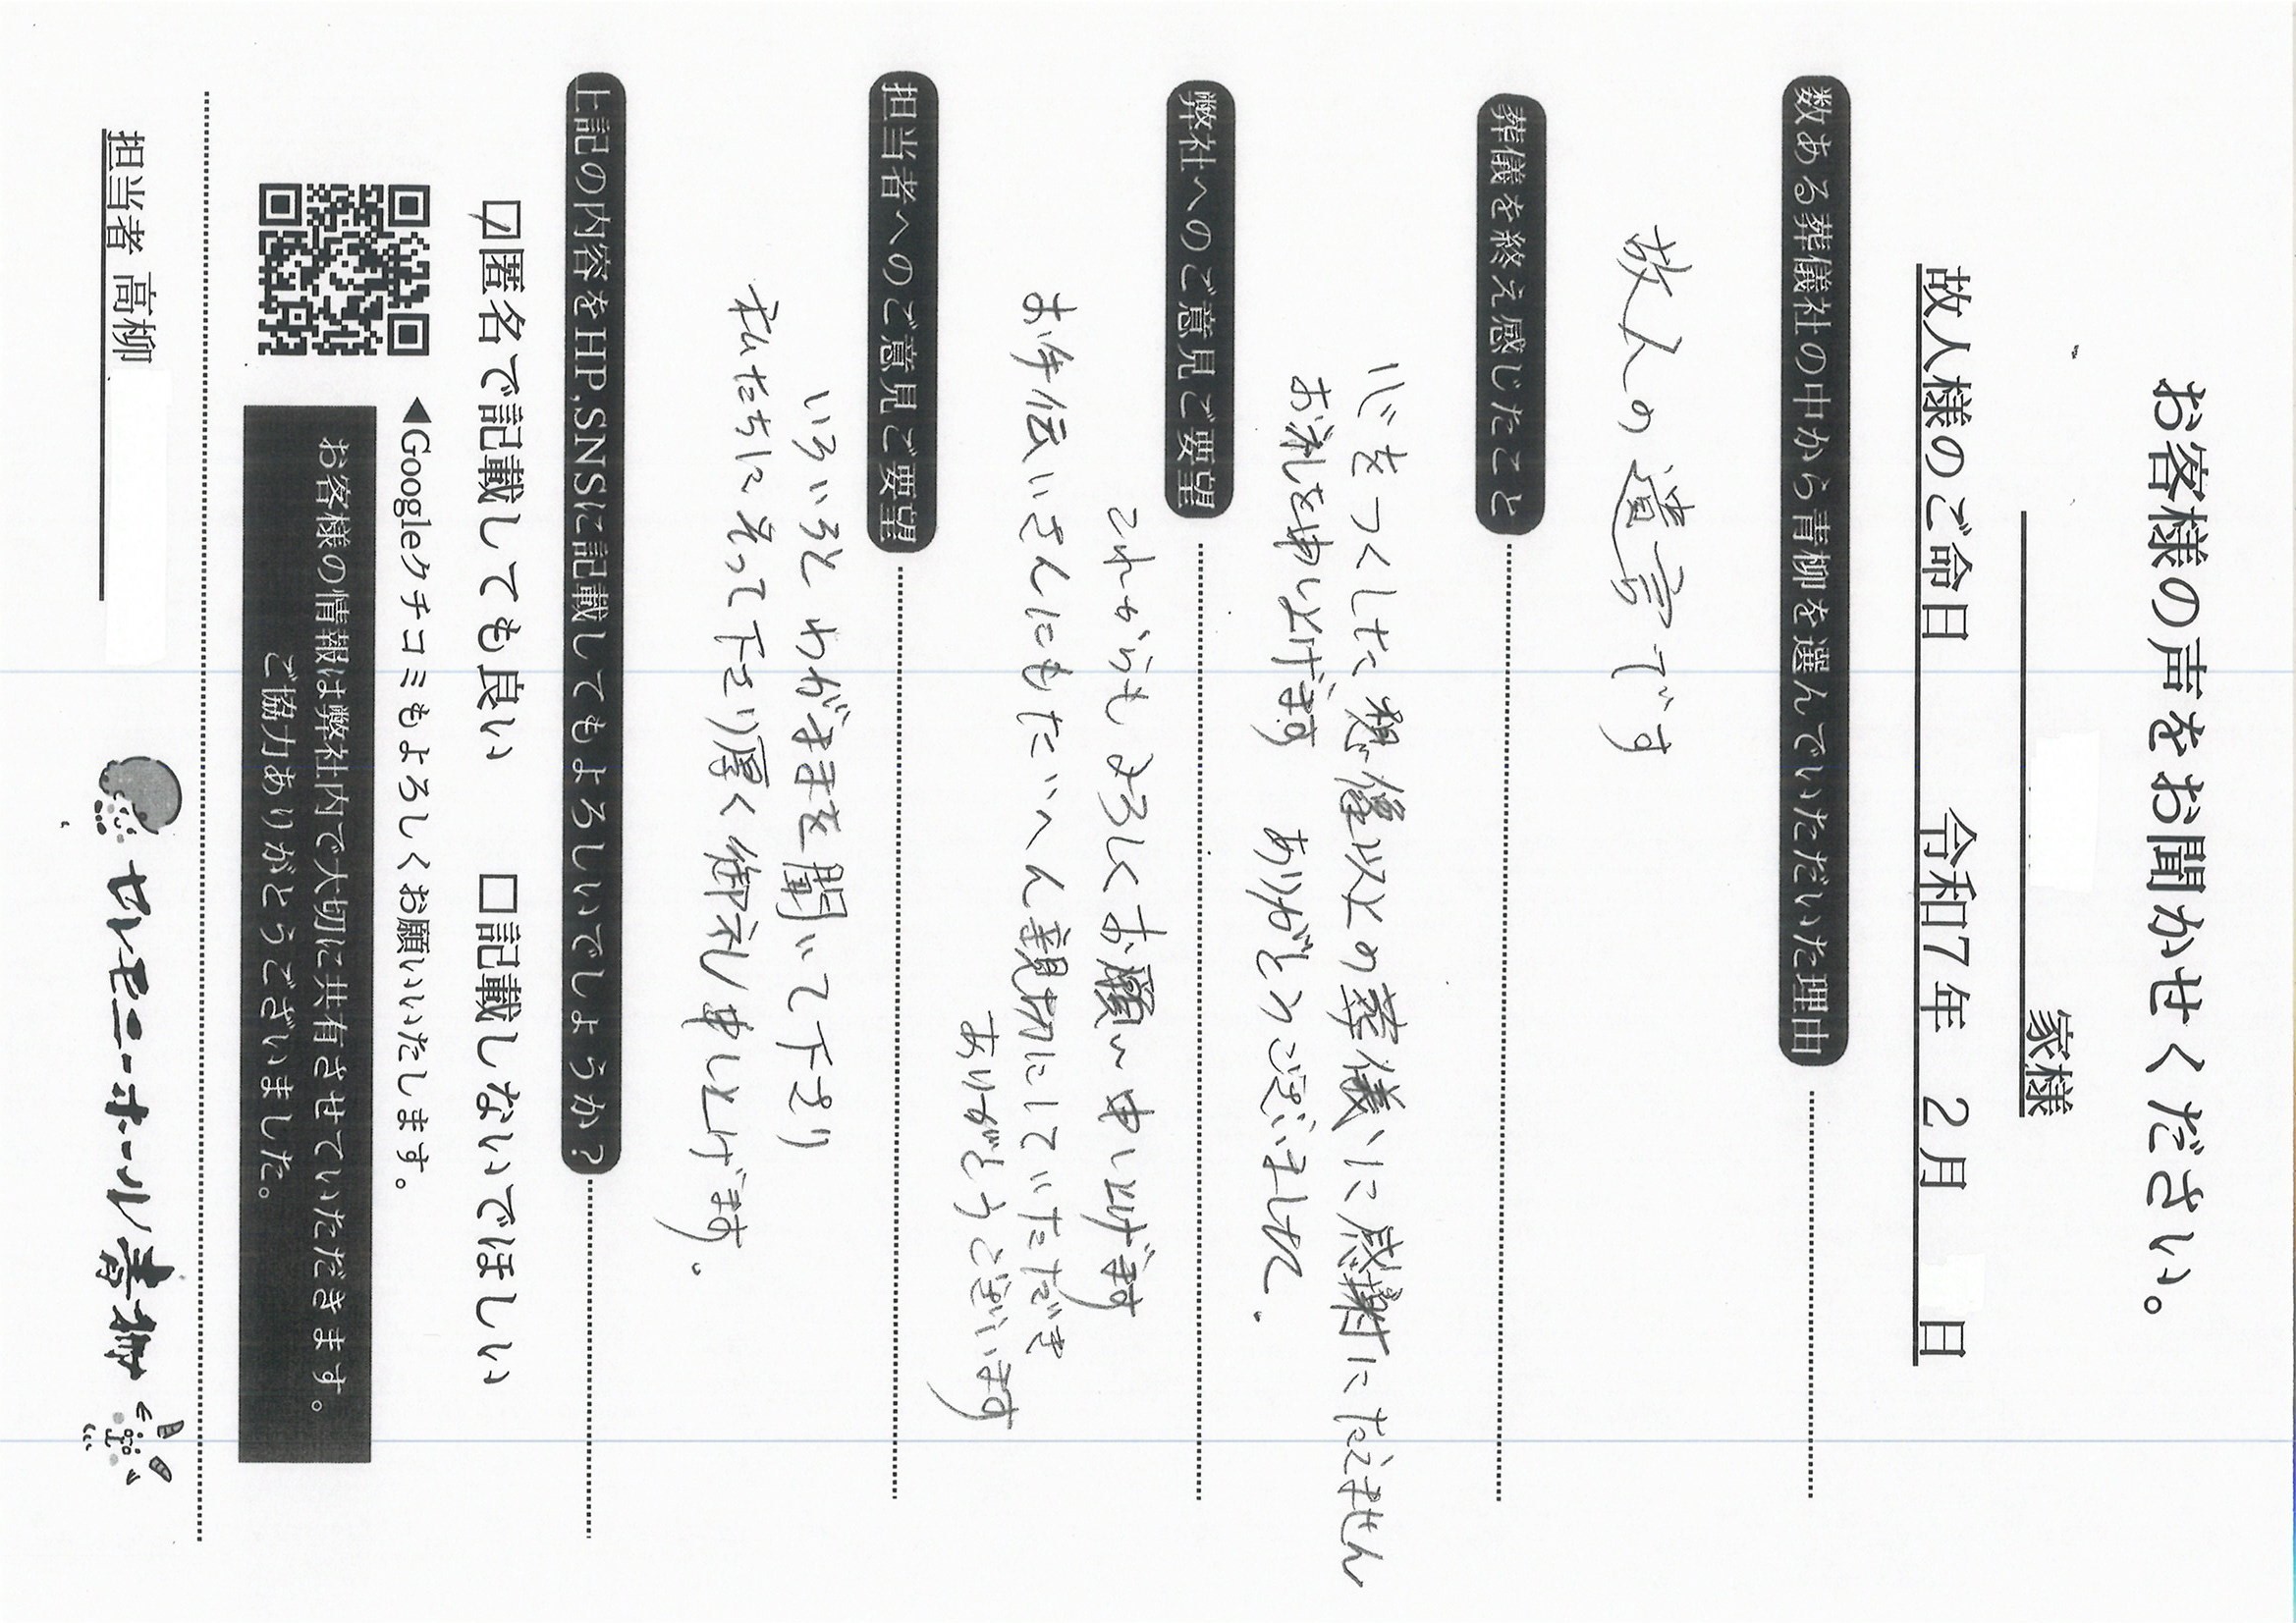 お客様の声をお聞かせください。
家様
故人様のご命日 令和7年 2月 日
数ある葬儀社の中から青柳を選んでいただいた理由
故人の遺言です
葬儀を終え感じたこと
心をつくした想像以上の葬儀に感謝にたえません
お礼を申し上げます ありがとうございました.
弊社へのご意見ご要望
これからもよろしくお願い申し上げます
お手伝いさんにもたいへん親切にしていただき
ありがとうございます
担当者へのご意見ご要望
いろいろとわがままを聞いて下さり
私たちにそって下さり厚く御礼申し上げます。
上記の内容をHP,SNSに記載してもよろしいでしょうか?
☑匿名で記載しても良い □記載しないでほしい
◀Googleクチコミもよろしくお願いいたします。
お客様の情報は弊社内で大切に共有させていただきます。
ご協力ありがとうございました。
担当者 高柳
セレモニーホール青柳